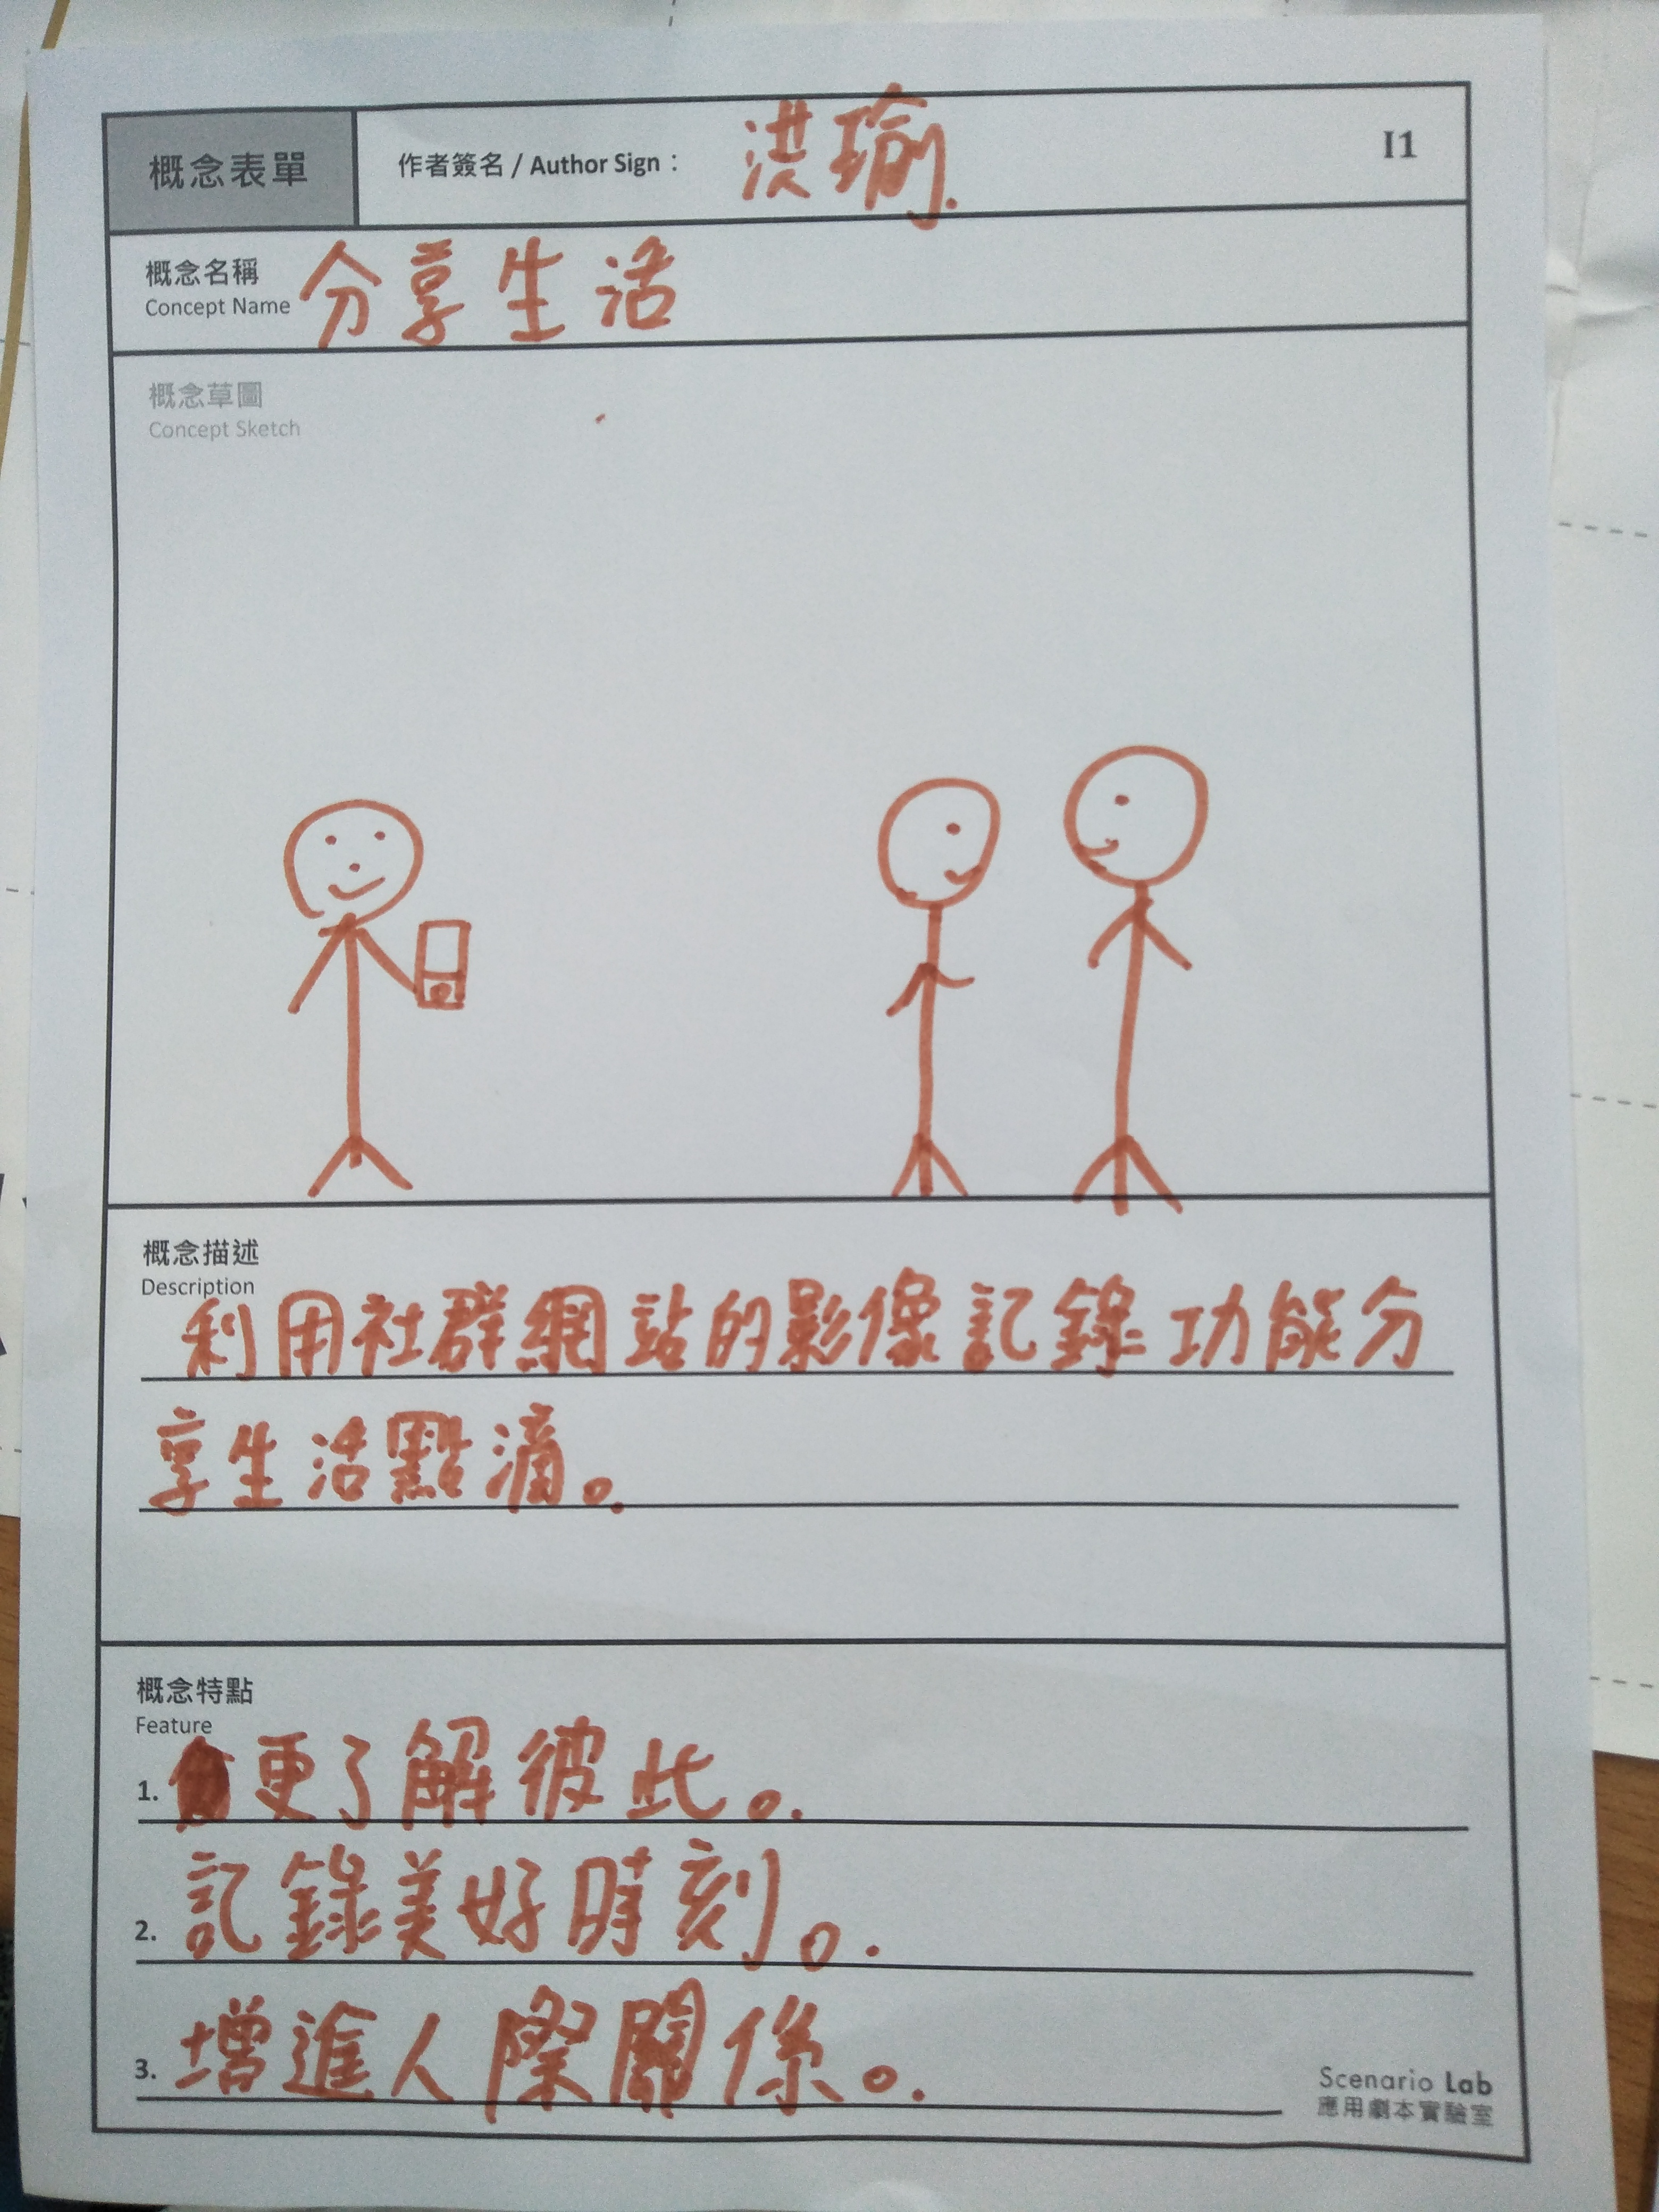 概念表單
作者簽名 / Author Sign： 洪瑜
I1
概念名稱
Concept Name
分享生活
概念草圖
Concept Sketch
概念描述
Description
利用社群網站的影像記錄功能分
享生活點滴。
概念特點
Feature
1. 更了解彼此。
2. 記錄美好時刻。
3. 增進人際關係。
Scenario Lab
應用劇本實驗室